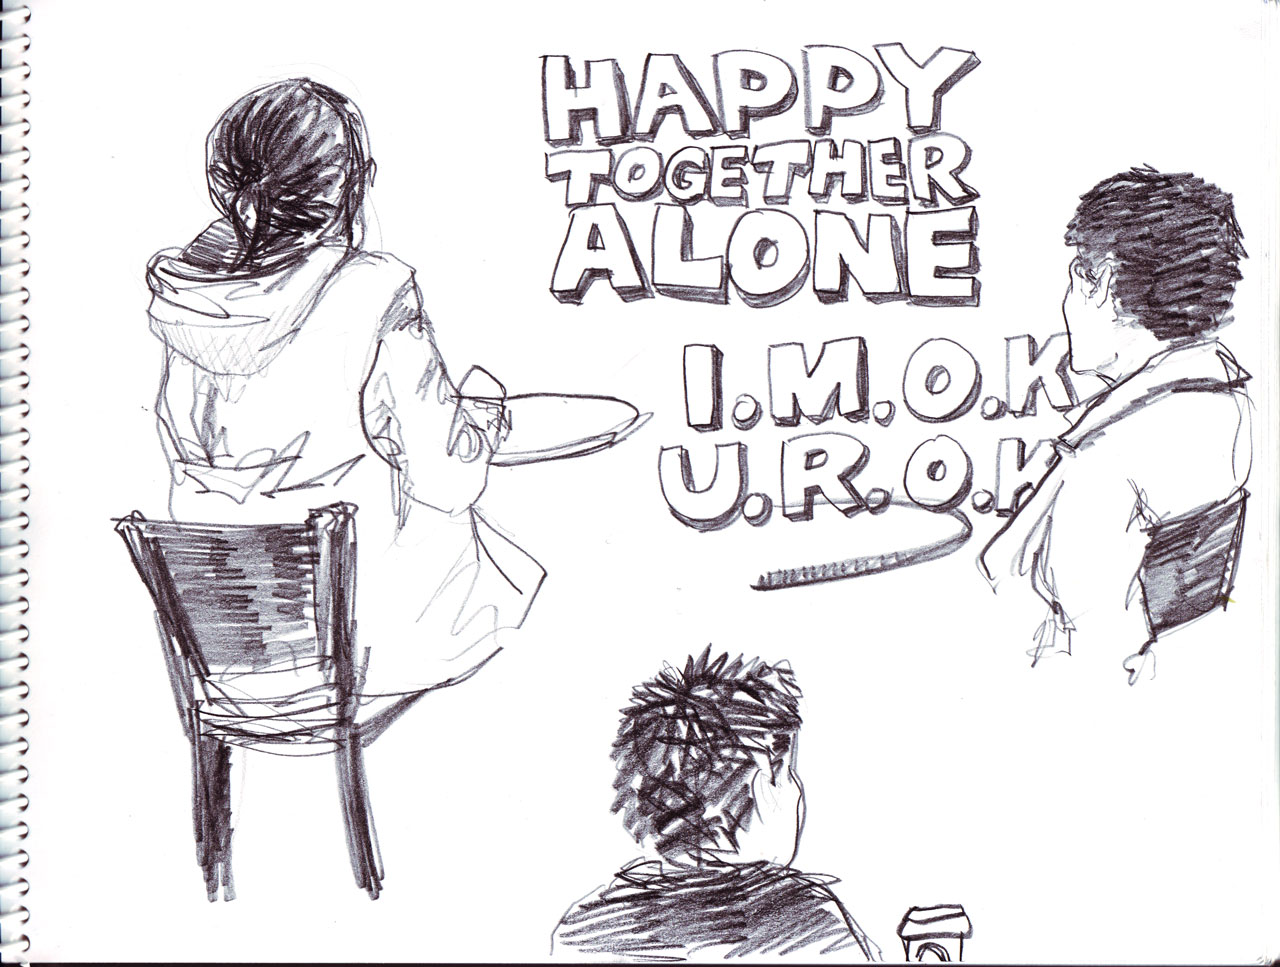 HAPPY
TOGETHER
ALONE
I.M.O.K
U.R.O.K